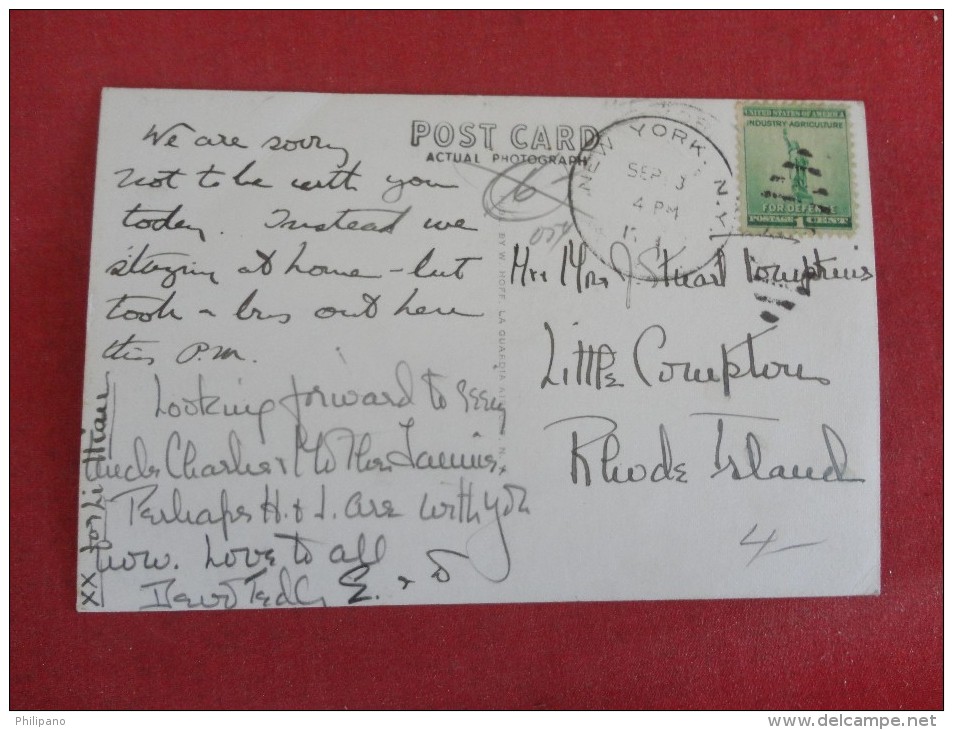 POST CARD
ACTUAL PHOTOGRAPH
NEW YORK, N.Y.
SEP 3
4 PM
UNITED STATES OF AMERICA
INDUSTRY-AGRICULTURE
FOR DEFENSE
POSTAGE 1 CENT
We are sorry
not to be with you
today. Instead we
staying at home - but
took a bus out here
this P.M.
Looking forward to seeing
Uncle Charlie &
Perhaps H. & J. are with you
now. Love to all
E. & D
xx for Lillian
BY W. HOFF, LA GUARDIA
Mr. Mrs J. Stuart Tompkins
Little Compton
Rhode Island
4-
Philipano
http://www.delcampe.net